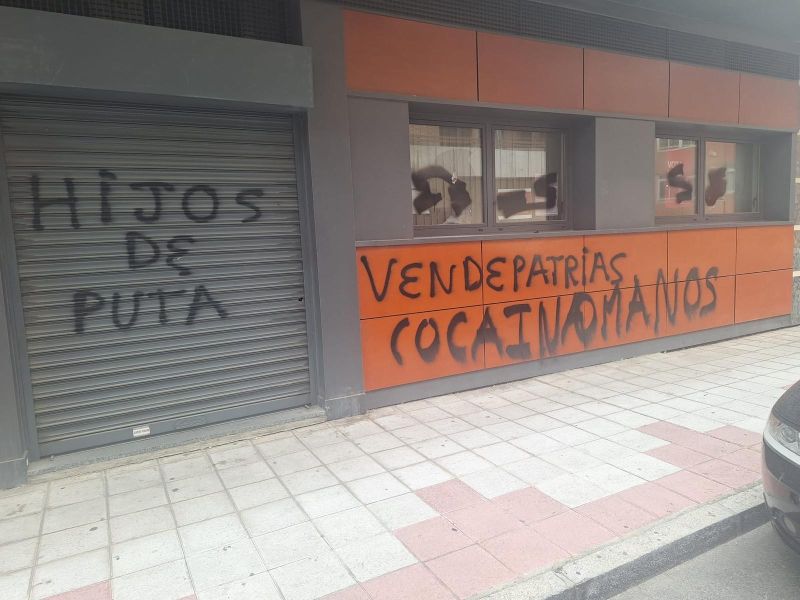 HIJOS
DE
PUTA
VENDEPATRIAS
COCAINOMANOS